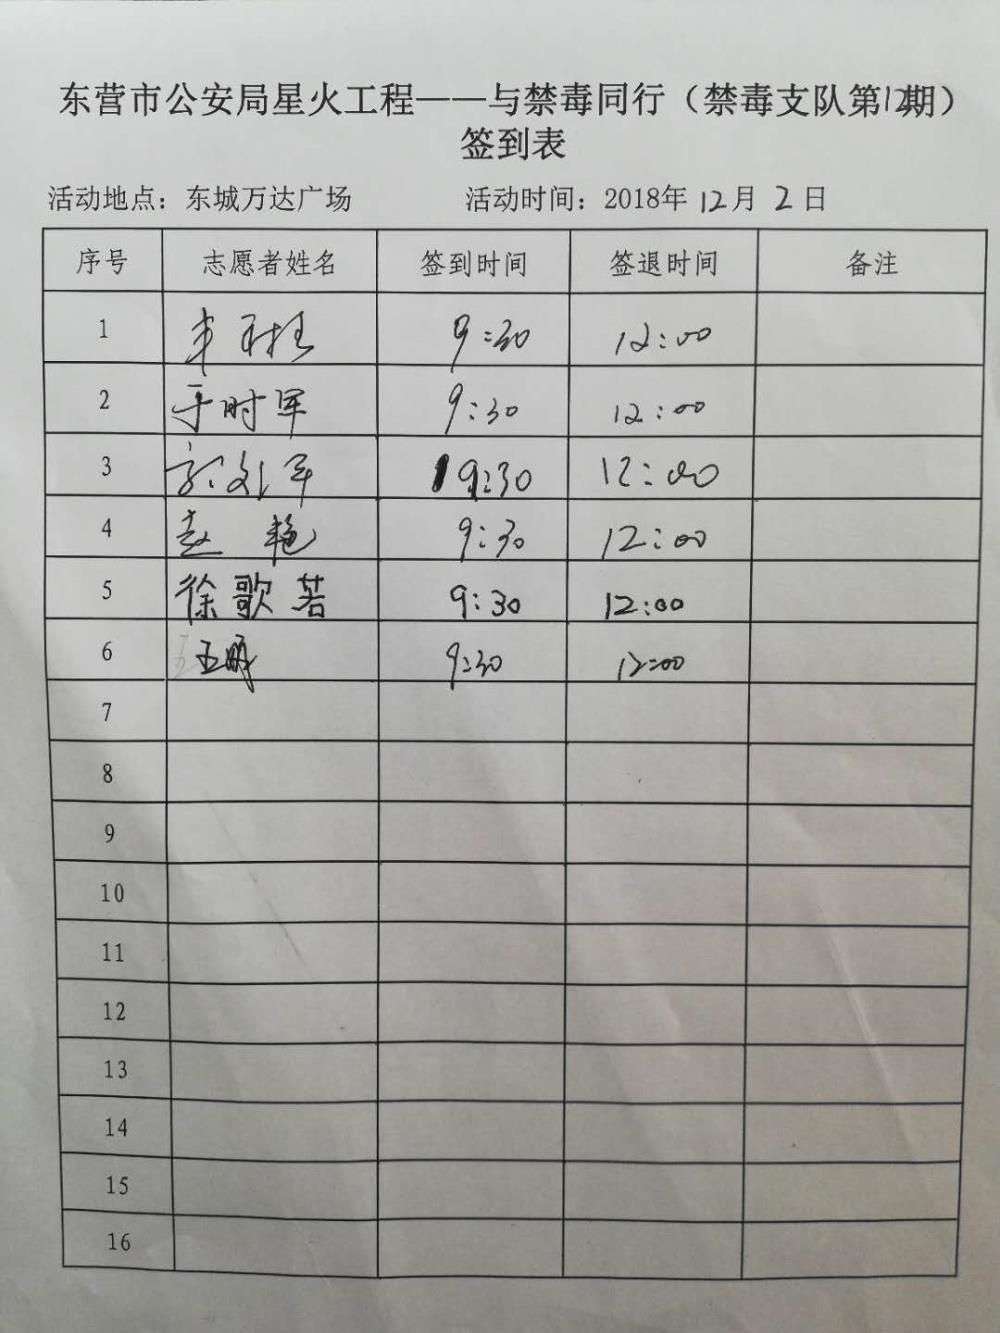 东营市公安局星火工程——与禁毒同行（禁毒支队第12期）
签到表
活动地点：东城万达广场 活动时间：2018年12月2日
序号 志愿者姓名 签到时间 签退时间 备注
1 9:30 12:00
2 于时军 9:30 12:00
3 军 9:30 12:00
4 赵艳 9:30 12:00
5 徐歌若 9:30 12:00
6 王鹏 9:30 12:00
7
8
9
10
11
12
13
14
15
16